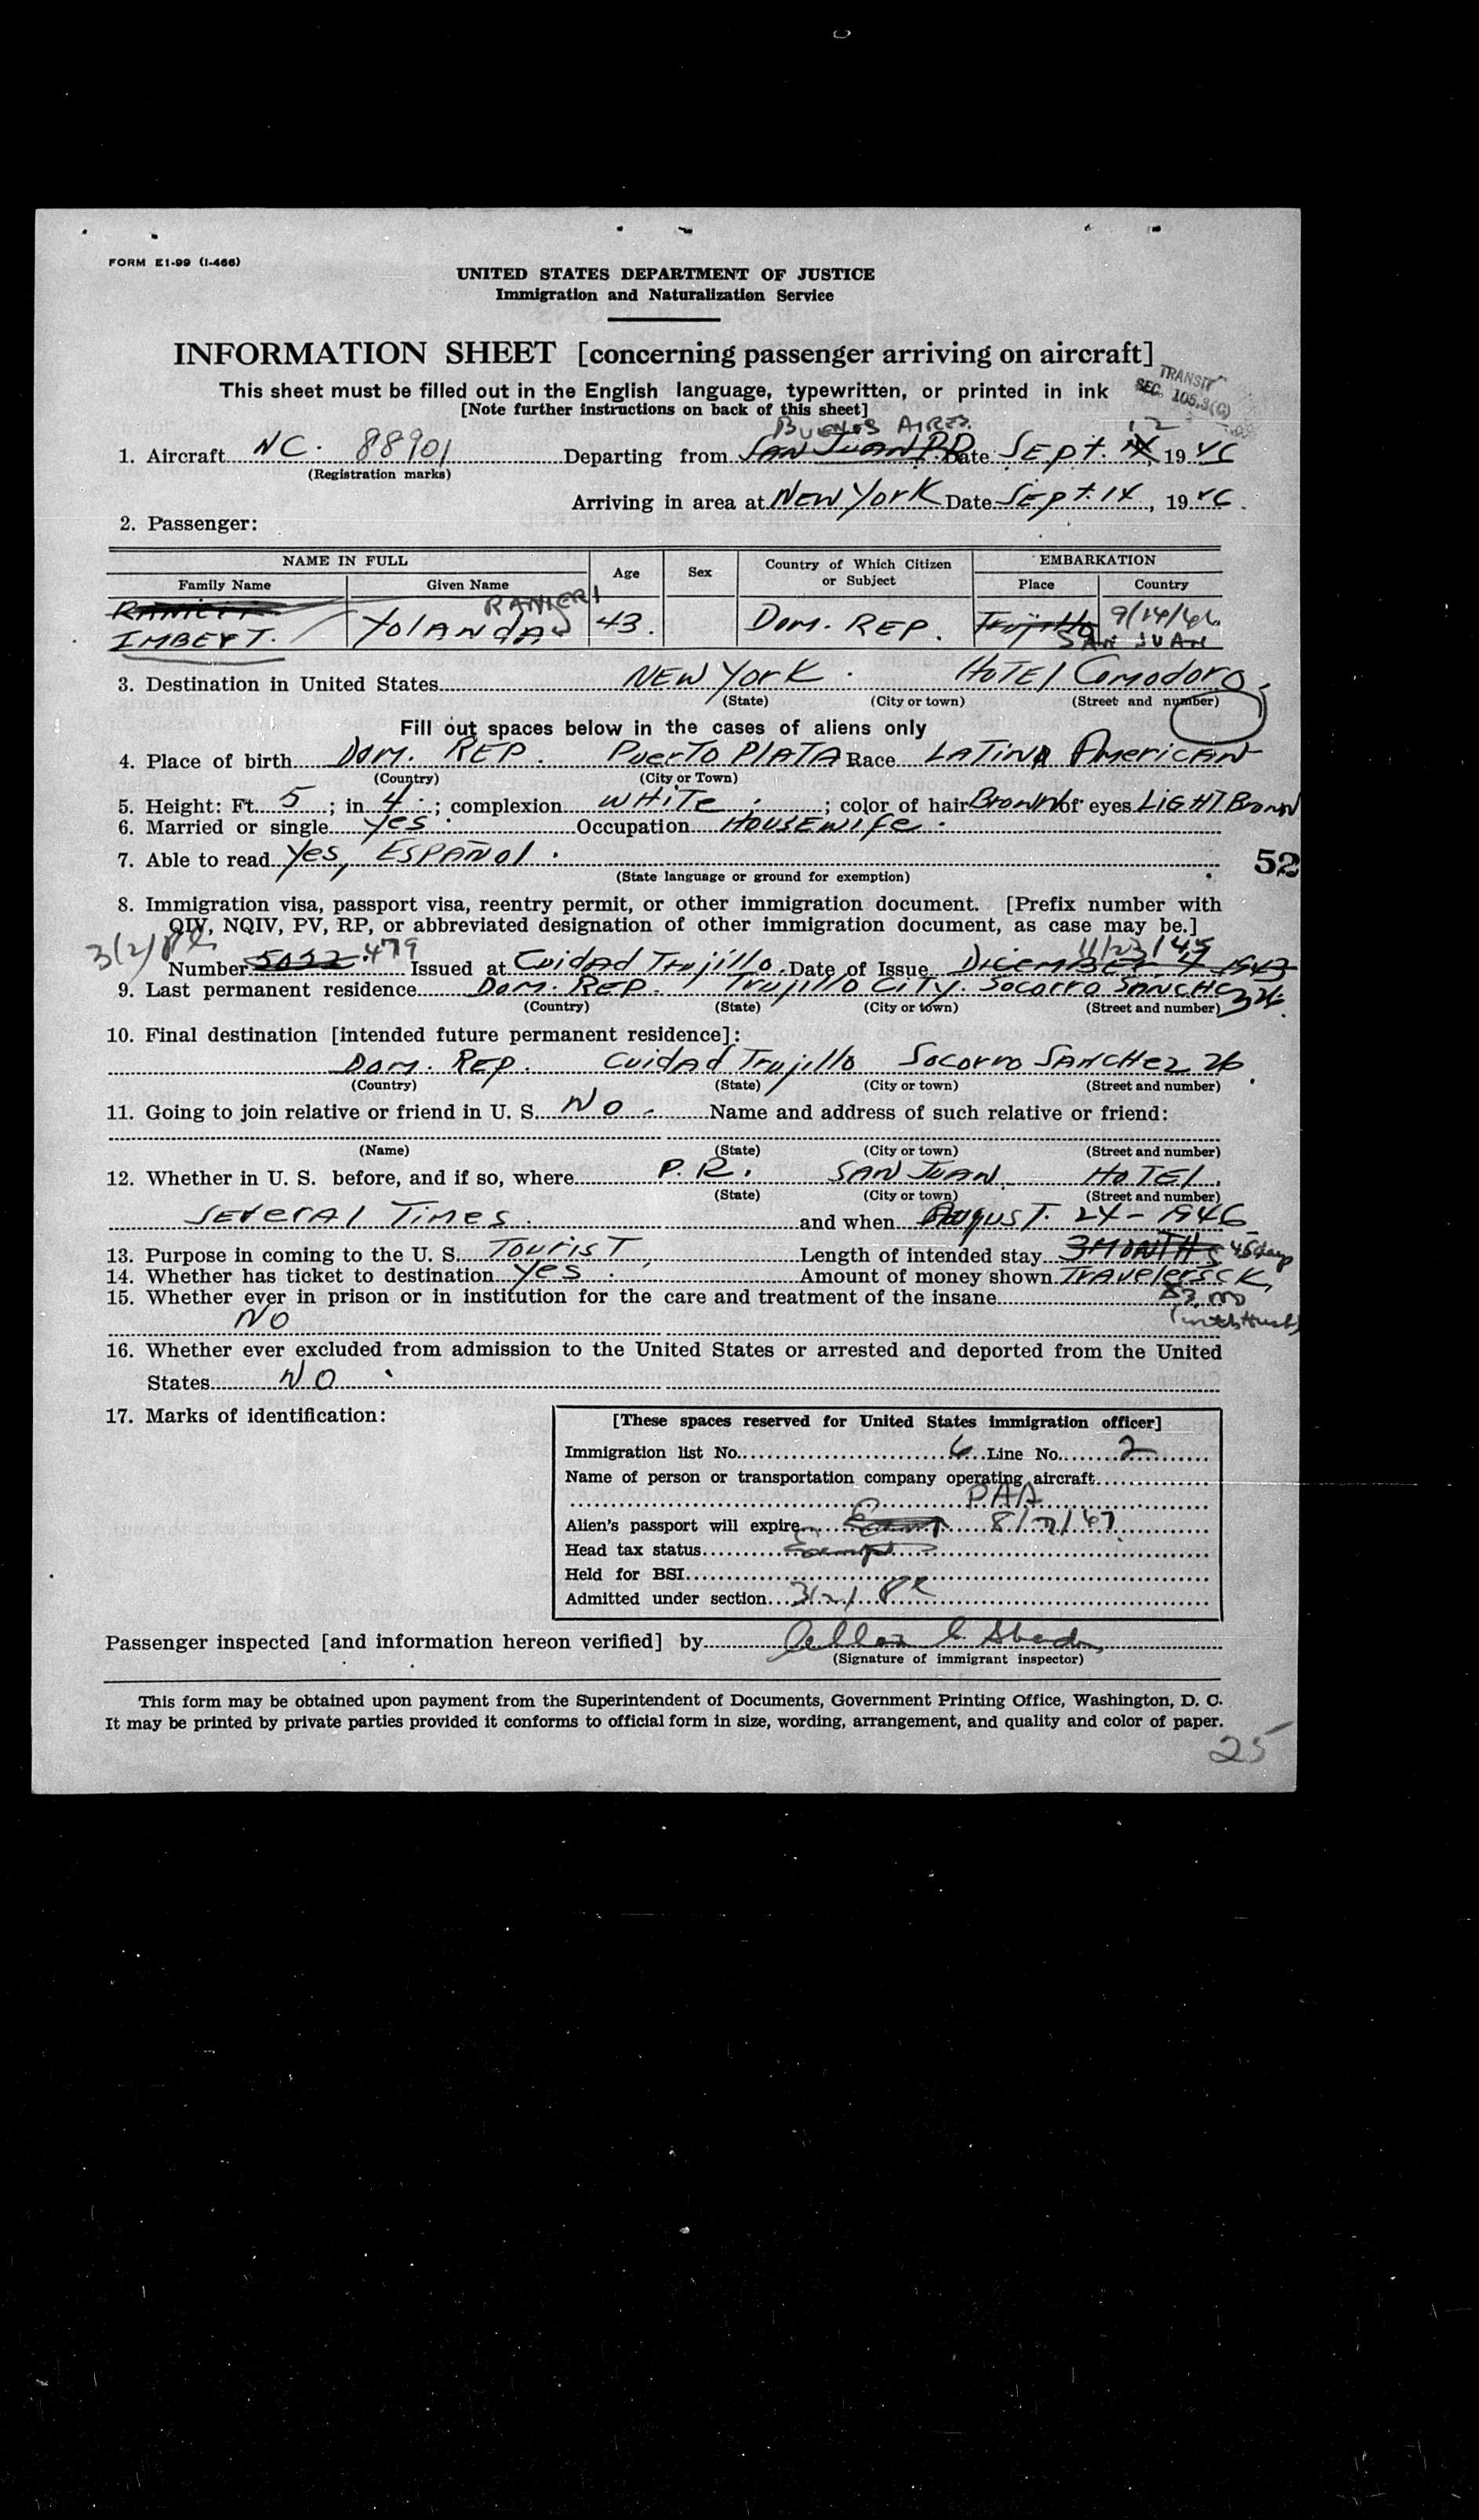 FORM E1-99 (I-466)
UNITED STATES DEPARTMENT OF JUSTICE
Immigration and Naturalization Service
INFORMATION SHEET [concerning passenger arriving on aircraft]
TRANSIT
SEC. 105.3(G)
This sheet must be filled out in the English language, typewritten, or printed in ink
[Note further instructions on back of this sheet]
BUENOS AIRES 12
1. Aircraft NC. 88901 Departing from SAN JUAN Date SEPT. 1946
(Registration marks)
Arriving in area at NEW YORK Date SEPT. 14, 1946.
2. Passenger:
NAME IN FULL Age Sex Country of Which Citizen or Subject EMBARKATION
Family Name Given Name Place Country
RANIERI
IMBERT. YOLANDA 43. DOM. REP. Trujillo 9/14/46
SAN JUAN
3. Destination in United States NEW YORK. HOTEL Comodoro.
(State) (City or town) (Street and number)
Fill out spaces below in the cases of aliens only
4. Place of birth DOM. REP. PUERTO PLATA Race LATINA American
(Country) (City or Town)
5. Height: Ft. 5; in 4.; complexion WHITE.; color of hair Brown of eyes LIGHT Brown
6. Married or single yes. Occupation HOUSEWIFE.
7. Able to read Yes, ESPAÑOL.
(State language or ground for exemption)
52
8. Immigration visa, passport visa, reentry permit, or other immigration document. [Prefix number with
QIV, NQIV, PV, RP, or abbreviated designation of other immigration document, as case may be.]
3(2) 11/23/45
Number 5032 479 Issued at Cuidad Trujillo. Date of Issue DICEMBER 4 1943
9. Last permanent residence Dom. REP. Trujillo CITY. SOCORRO SANCHE
(Country) (State) (City or town) (Street and number)
10. Final destination [intended future permanent residence]:
Dom. REP. Cuidad Trujillo SOCORRO SANCHEZ 26
(Country) (State) (City or town) (Street and number)
11. Going to join relative or friend in U. S. NO. Name and address of such relative or friend:
(Name) (State) (City or town) (Street and number)
12. Whether in U. S. before, and if so, where P.R. SAN JUAN. HOTEL.
(State) (City or town) (Street and number)
SEVERAL TIMES. and when AUGUST. 24-1946
13. Purpose in coming to the U. S. TOURIST Length of intended stay 3 MONTHS 45 days
14. Whether has ticket to destination yes. Amount of money shown TRAVELERS CK,
15. Whether ever in prison or in institution for the care and treatment of the insane
NO
16. Whether ever excluded from admission to the United States or arrested and deported from the United
States NO
17. Marks of identification:
[These spaces reserved for United States immigration officer]
Immigration list No. 6 Line No. 2
Name of person or transportation company operating aircraft
PAA
Alien's passport will expire 8/7/47
Head tax status Exempt
Held for BSI
Admitted under section 3(2)
Passenger inspected [and information hereon verified] by
(Signature of immigrant inspector)
This form may be obtained upon payment from the Superintendent of Documents, Government Printing Office, Washington, D. C.
It may be printed by private parties provided it conforms to official form in size, wording, arrangement, and quality and color of paper.
25